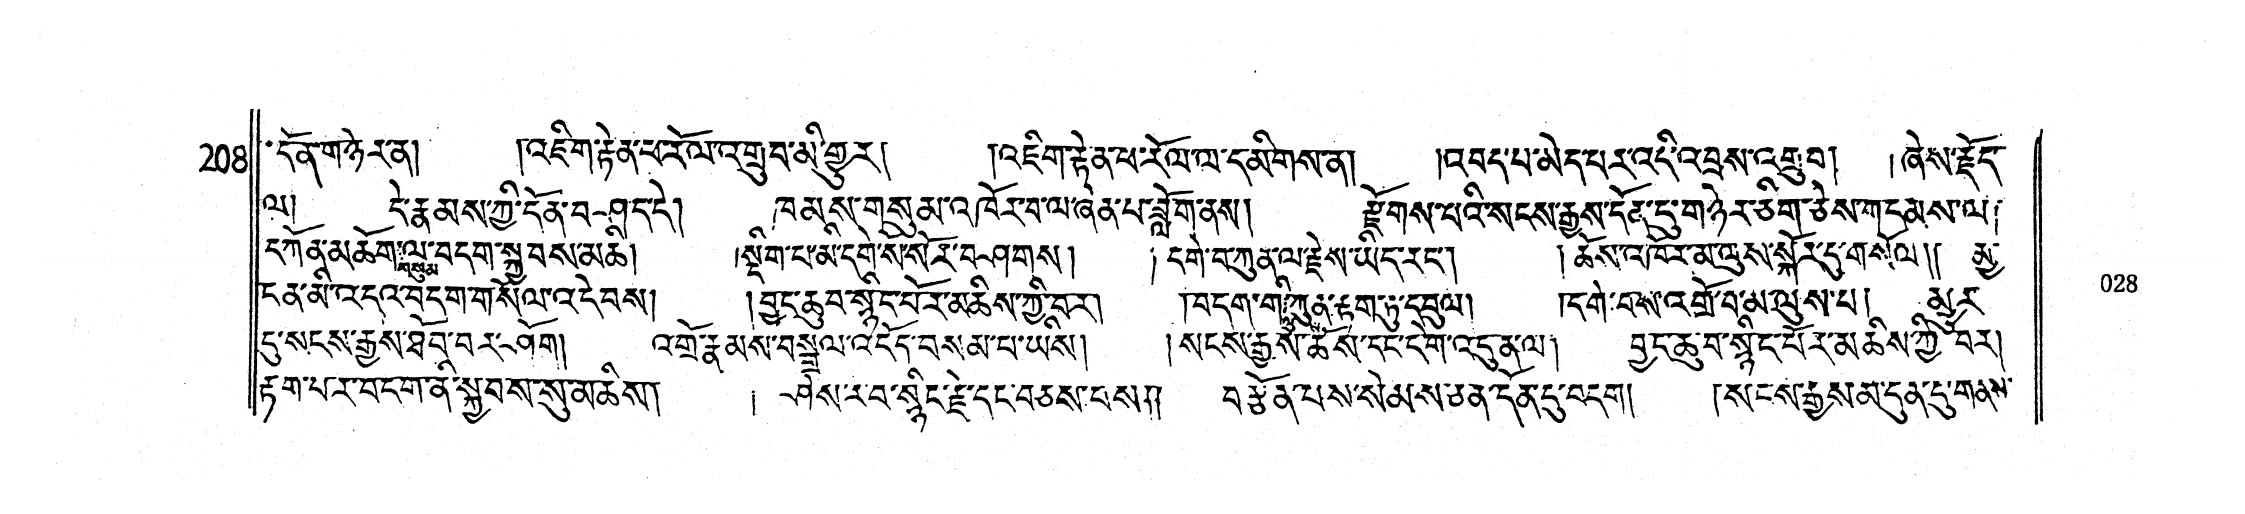 208 དོན་གཉེར་ན། །འཇིག་རྟེན་ཕ་རོལ་འགྲུབ་མི་གྱུར། །འཇིག་རྟེན་ཕ་རོལ་ལ་དམིགས་ན། །འབད་པ་མེད་པར་འདི་འབྲས་འགྲུབ། །ཞེས་རྗོད་
ལ། དེ་རྣམས་ཀྱི་དོན་བཤད་དེ། ཁམས་གསུམ་འཁོར་བ་ལ་ཞེན་པ་བློག་ནས། རྫོགས་པའི་སངས་རྒྱས་དོན་དུ་གཉེར་ཅིག་ཅེས་གདམས་ལ།
དཀོན་མཆོག་གསུམ་ལ་བདག་སྐྱབས་མཆི། །སྡིག་པ་མི་དགེ་སོ་སོར་བཤགས། །དགེ་བ་ཀུན་ལ་རྗེས་ཡི་རང་། །ཆོས་འཁོར་མ་ལུས་སྐོར་དུ་གསོལ།། མྱ་
ངན་མི་འདའ་བདག་གསོལ་འདེབས། །བྱང་ཆུབ་སྙིང་པོར་མཆིས་ཀྱི་བར། །བདག་གི་ཀུན་རྟག་ཏུ་དབུལ། །དགེ་བས་འགྲོ་བ་མ་ལུས་པ། མྱུར་
དུ་སངས་རྒྱས་ཐོབ་བར་ཤོག། འགྲོ་རྣམས་བསྒྲལ་འདོད་བསམ་པ་ཡིས། །སངས་རྒྱས་ཆོས་དང་དགེ་འདུན་ལ། བྱང་ཆུབ་སྙིང་པོར་མཆིས་ཀྱི་བར།
རྟག་པར་བདག་ནི་སྐྱབས་སུ་མཆིས། །ཤེས་རབ་སྙིང་རྗེ་དང་བཅས་པས།། བརྩོན་པས་སེམས་ཅན་དོན་དུ་བདག། །སངས་རྒྱས་མདུན་དུ་གནས་
028